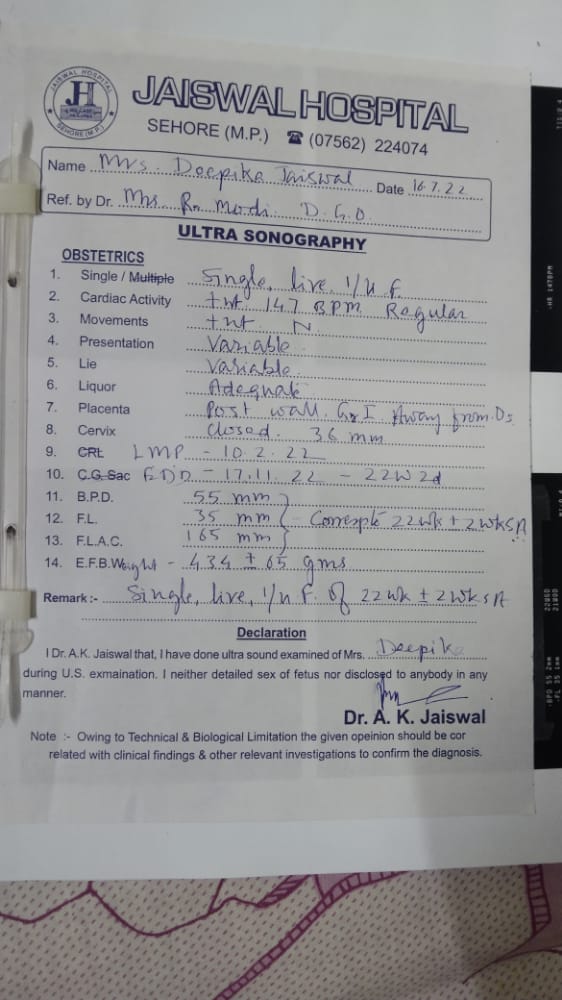 JAISWAL HOSPITAL
JH
SEHORE (M.P.)
JAISWAL HOSPITAL
SEHORE (M.P.) ☎ (07562) 224074
Name Mrs. Deepika Jaiswal Date 16.7.22
Ref. by Dr. Mrs. R. Modi D.G.O.
ULTRA SONOGRAPHY
OBSTETRICS
1. Single / Multiple Single, live, I/U F.
2. Cardiac Activity +nt 147 BPM Regular
3. Movements +nt N
4. Presentation Variable
5. Lie Variable
6. Liquor Adequate
7. Placenta Post wall. Gr I Away from Os
8. Cervix Closed. 36 mm
9. CRL LMP - 10.2.22
10. C.G. Sac EDD - 17.11.22 - 22W 2d
11. B.P.D. 55 mm
12. F.L. 35 mm - 22wk ± 2wks
13. F.L.A.C. 165 mm
14. E.F.B.Weight - 434 ± 65 gms
Remark :- Single, live, I/U F. of 22wk ± 2wks
Declaration
I Dr. A.K. Jaiswal that, I have done ultra sound examined of Mrs. Deepika
during U.S. exmaination. I neither detailed sex of fetus nor disclosed to anybody in any
manner.
Dr. A. K. Jaiswal
Note :- Owing to Technical & Biological Limitation the given opeinion should be cor
related with clinical findings & other relevant investigations to confirm the diagnosis.